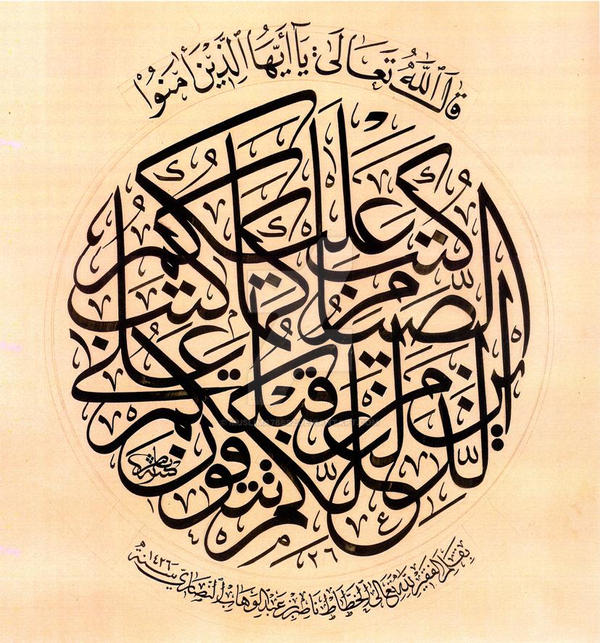 قال الله تعالى يا أيها الذين آمنوا
كتب عليكم الصيام كما كتب على الذين من قبلكم لعلكم تتقون
بقلم الفقير لله تعالى الخطاط ناصر عبدالوهاب النصاري سنة ١٤٢٦